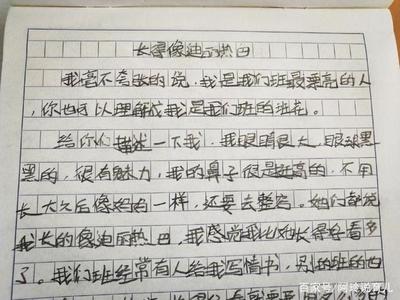 长得像迪丽热巴
我毫不夸张的说,我是我们班最漂亮的人
,你也可以理解成我是我们班的班花。
给你们描述一下我,我眼睛很大,眼球黑
黑的,很有魅力,我的鼻子很是挺高的,不用
长大之后像妈妈一样,还要去整容。她们都说
我长的像迪丽热巴,我感觉我比她长得好看多
了。我们班经常有人给我写情书,别的班的也
百家号/阿玲说育儿